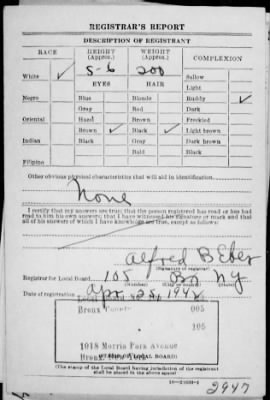 REGISTRAR'S REPORT
DESCRIPTION OF REGISTRANT
RACE HEIGHT (Approx.) WEIGHT (Approx.) COMPLEXION
White ✓ 5-6 200 Sallow
EYES HAIR Light
Negro Blue Blonde Ruddy ✓
Gray Red Dark
Oriental Hazel Brown Freckled
Brown ✓ Black ✓ Light brown
Indian Black Gray Dark brown
Bald Black
Filipino
Other obvious physical characteristics that will aid in identification
None
I certify that my answers are true; that the person registered has read or has had
read to him his own answers; that I have witnessed his signature or mark and that
all of his answers of which I have knowledge are true, except as follows:
Alfred B Eber
(Signature of registrar)
Registrar for Local Board 105 Bx NY
(Number) (City or county) (State)
Date of registration Apr. 25, 1942
Bronx County 005
105
1018 Morris Park Avenue
Bronx, New York
(STAMP OF LOCAL BOARD)
(The stamp of the Local Board having jurisdiction of the registrant
shall be placed in the above space)
2947